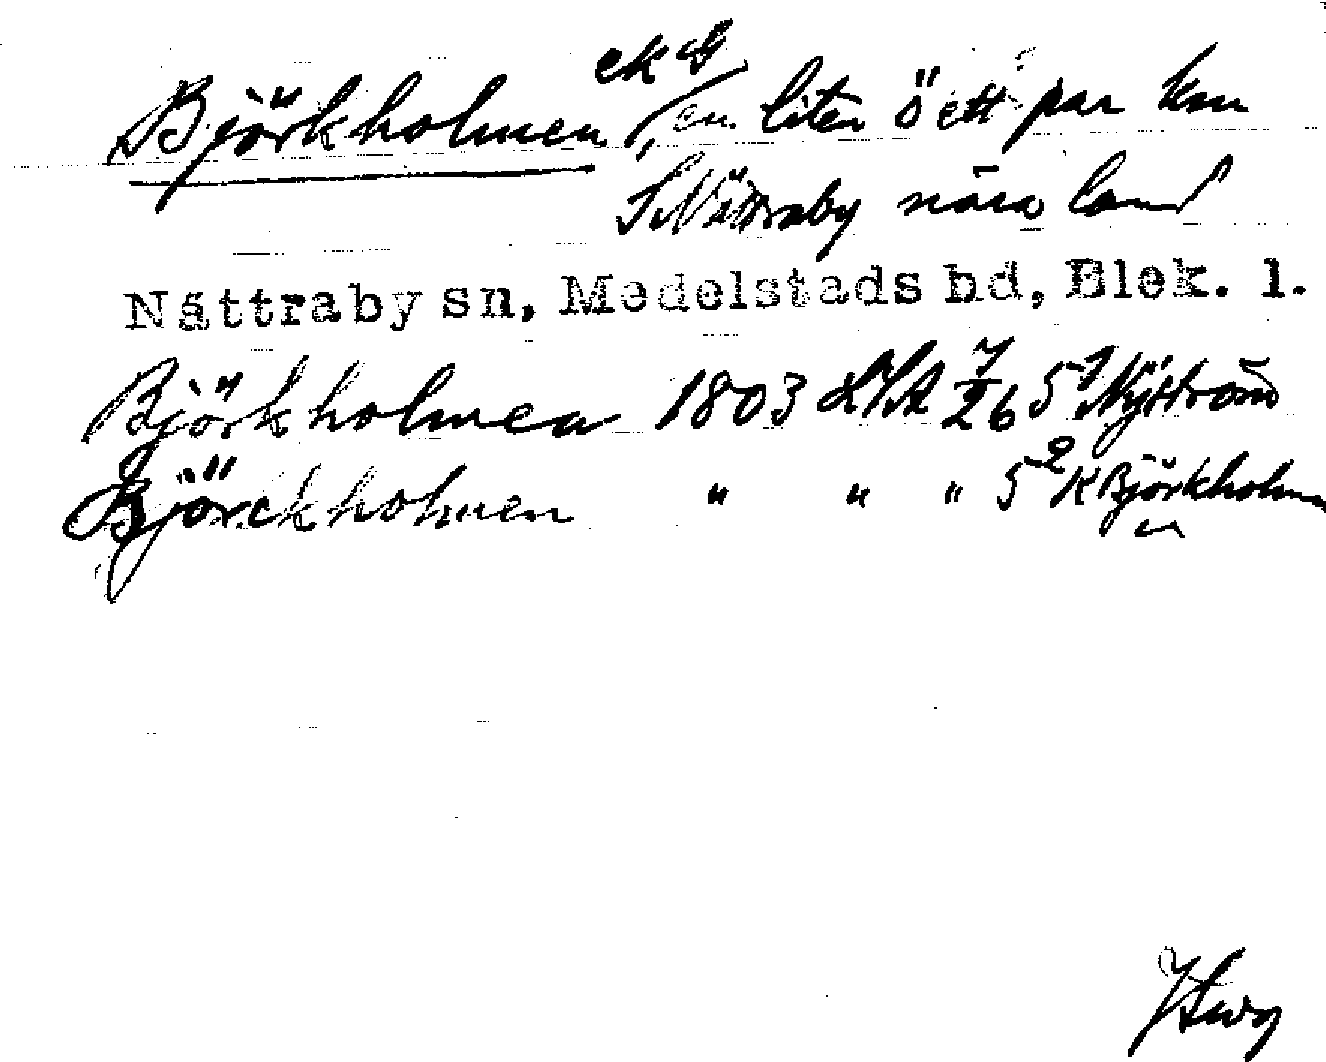 Björkholmen ek bl, en liten ö ett par km
S Nättraby nära land
Nättraby sn, Medelstads hd, Blek. l.
Björkholmen 1803 7/26 5¹ Nyström
Björckholmen " " " 5² K Björkholmen